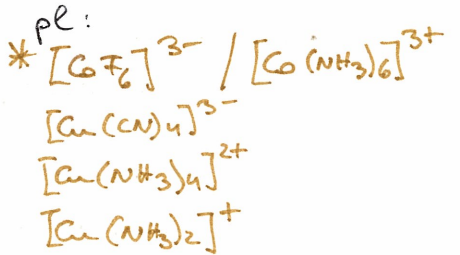 pl:
* [CoF6]3- / [Co(NH3)6]3+
[Cu(CN)4]3-
[Cu(NH3)4]2+
[Cu(NH3)2]+